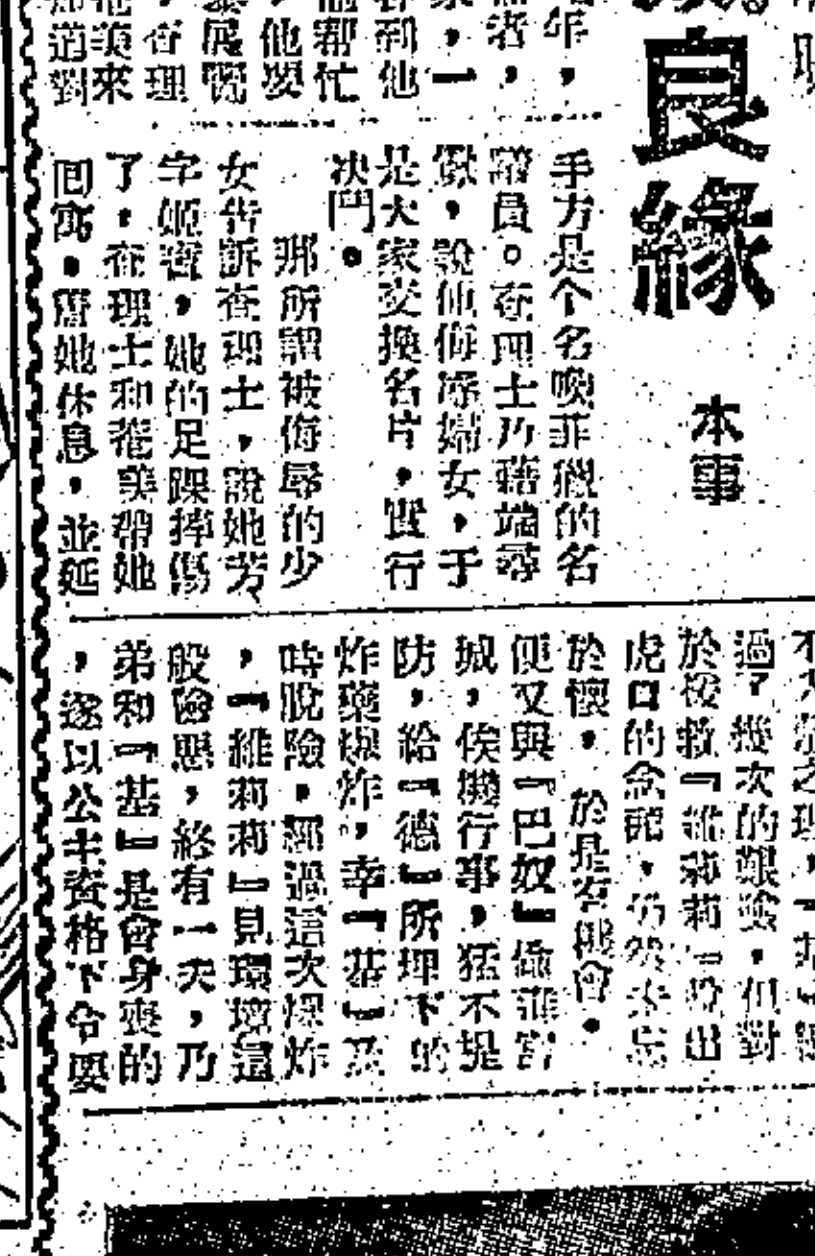 良緣
本事
年，
者，
，一
到他
他帮忙
，他要
展
，查理
他美來
道對
手方是个名喚菲獵的名
議員。查理士乃藉端尋
釁，說他侮辱婦女，于
是大家交換名片，實行
决鬥。
那所謂被侮辱的少
女告訴查理士，說她芳
字姬寶，她的足踝捽傷
了，查理士和菴美帶她
回寓，膺她休息，並延
不
過了幾次的艱險，但對
於援救『維莉莉』脫出
虎口的念頭，仍然未忘
於懷，於是有機會，
便又與『巴奴』偷
城，俟機行事，猛不提
防，給『德』所埋下的
炸藥爆炸，幸『基』及
時脫險，經過這次爆炸
，『維莉莉』見環境這
般險惡，終有一天，乃
弟和『基』是會身喪的
，遂以公主資格下令要